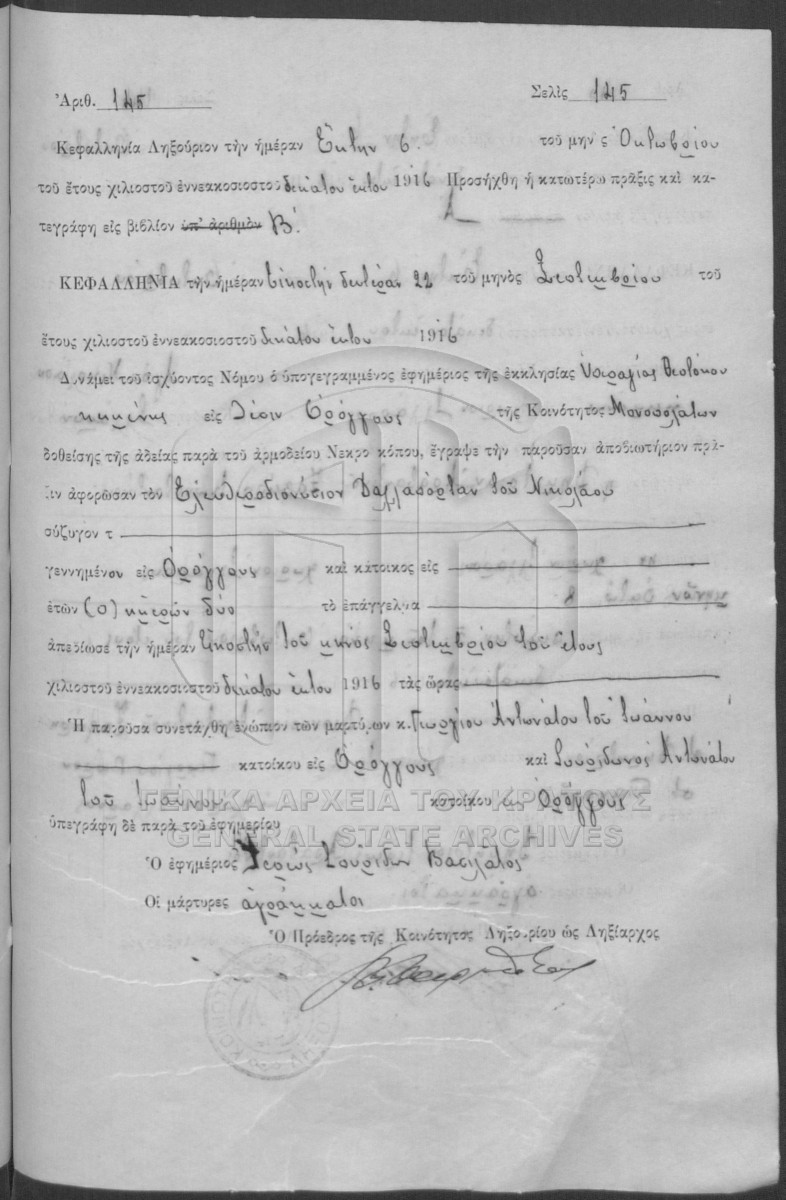 Ἀριθ. 145 Σελὶς 145
Κεφαλληνία Ληξούριον τὴν ἡμέραν Ἕκτην 6 τοῦ μην ς Ὀκτωβρίου
τοῦ ἔτους χιλιοστοῦ ἐννεακοσιοστοῦ δεκάτου ἕκτου 1916 Προσήχθη ἡ κατωτέρω πρᾶξις καὶ κα-
τεγράφη εἰς βιβλίον ὑπ' ἀριθμὸν Β'.
ΚΕΦΑΛΛΗΝΙΑ τὴν ἡμέραν εἰκοστὴν δευτέραν 22 τοῦ μηνὸς Σεπτεμβρίου τοῦ
ἔτους χιλιοστοῦ ἐννεακοσιοστοῦ δεκάτου ἕκτου 1916
Δυνάμει τοῦ ἰσχύοντος Νόμου ὁ ὑπογεγραμμένος ἐφημέριος τῆς ἐκκλησίας Ὑπεραγίας Θεοτόκου
κειμένης εἰς θέσιν Ὀρόγγους τῆς Κοινότητος Μονοπολάτων
δοθείσης τῆς ἀδείας παρὰ τοῦ ἁρμοδείου Νεκρο κόπου, ἔγραψε τὴν παροῦσαν ἀποβιωτήριον πρᾶ-
ξιν ἀφορῶσαν τὸν Ἐλευθεροδιονύσιον Δαλλαπόρταν τοῦ Νικολάου
σύζυγον τ
γεννημένον εἰς Ὀρόγγους καὶ κάτοικος εἰς
ἐτῶν (0) ἡμερῶν δύο τὸ ἐπάγγελμα
ἀπεβίωσε τὴν ἡμέραν εἰκοστὴν τοῦ μηνὸς Σεπτεμβρίου τοῦ ἔτους
χιλιοστοῦ ἐννεακοσιοστοῦ δεκάτου ἕκτου 1916 τὰς ὥρας
Ἡ παροῦσα συνετάχθη ἐνώπιον τῶν μαρτύρων κ. Γεωργίου Ἀντωνάτου τοῦ Ἰωάννου
κατοίκου εἰς Ὀρόγγους καὶ Σπυρίδωνος Ἀντωνάτου
τοῦ Ἰωάννου κατοίκου εἰς Ὀρόγγους
ὑπεγράφη δὲ παρὰ τοῦ ἐφημερίου
Ὁ ἐφημέριος Ἱερεὺς Σπυρίδων Βασιλάτος
Οἱ μάρτυρες ἀγράμματοι
Ὁ Πρόεδρος τῆς Κοινότητος Ληξουρίου ὡς Ληξίαρχος
ΓΕΝΙΚΑ ΑΡΧΕΙΑ ΤΟΥ ΚΡΑΤΟΥΣ
GENERAL STATE ARCHIVES